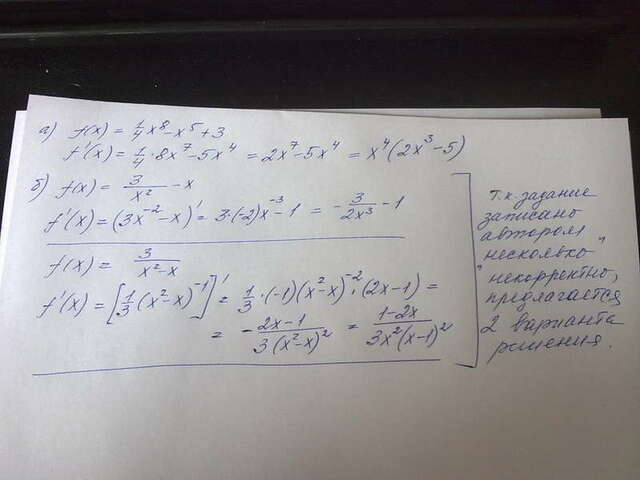 а) f(x) = 1/4 x⁸ - x⁵ + 3
f'(x) = 1/4 · 8x⁷ - 5x⁴ = 2x⁷ - 5x⁴ = x⁴(2x³ - 5)
б) f(x) = 3/x² - x
f'(x) = (3x⁻² - x)' = 3·(-2)x⁻³ - 1 = -3/(2x³) - 1
f(x) = 3/(x² - x)
f'(x) = [1/3 (x² - x)⁻¹]' = 1/3 · (-1)(x² - x)⁻² · (2x - 1) =
= - (2x - 1)/(3(x² - x)²) = (1 - 2x)/(3x²(x - 1)²)
т.к. задание
записано
автором
несколько
"некорректно",
предлагается
2 варианта
решения.